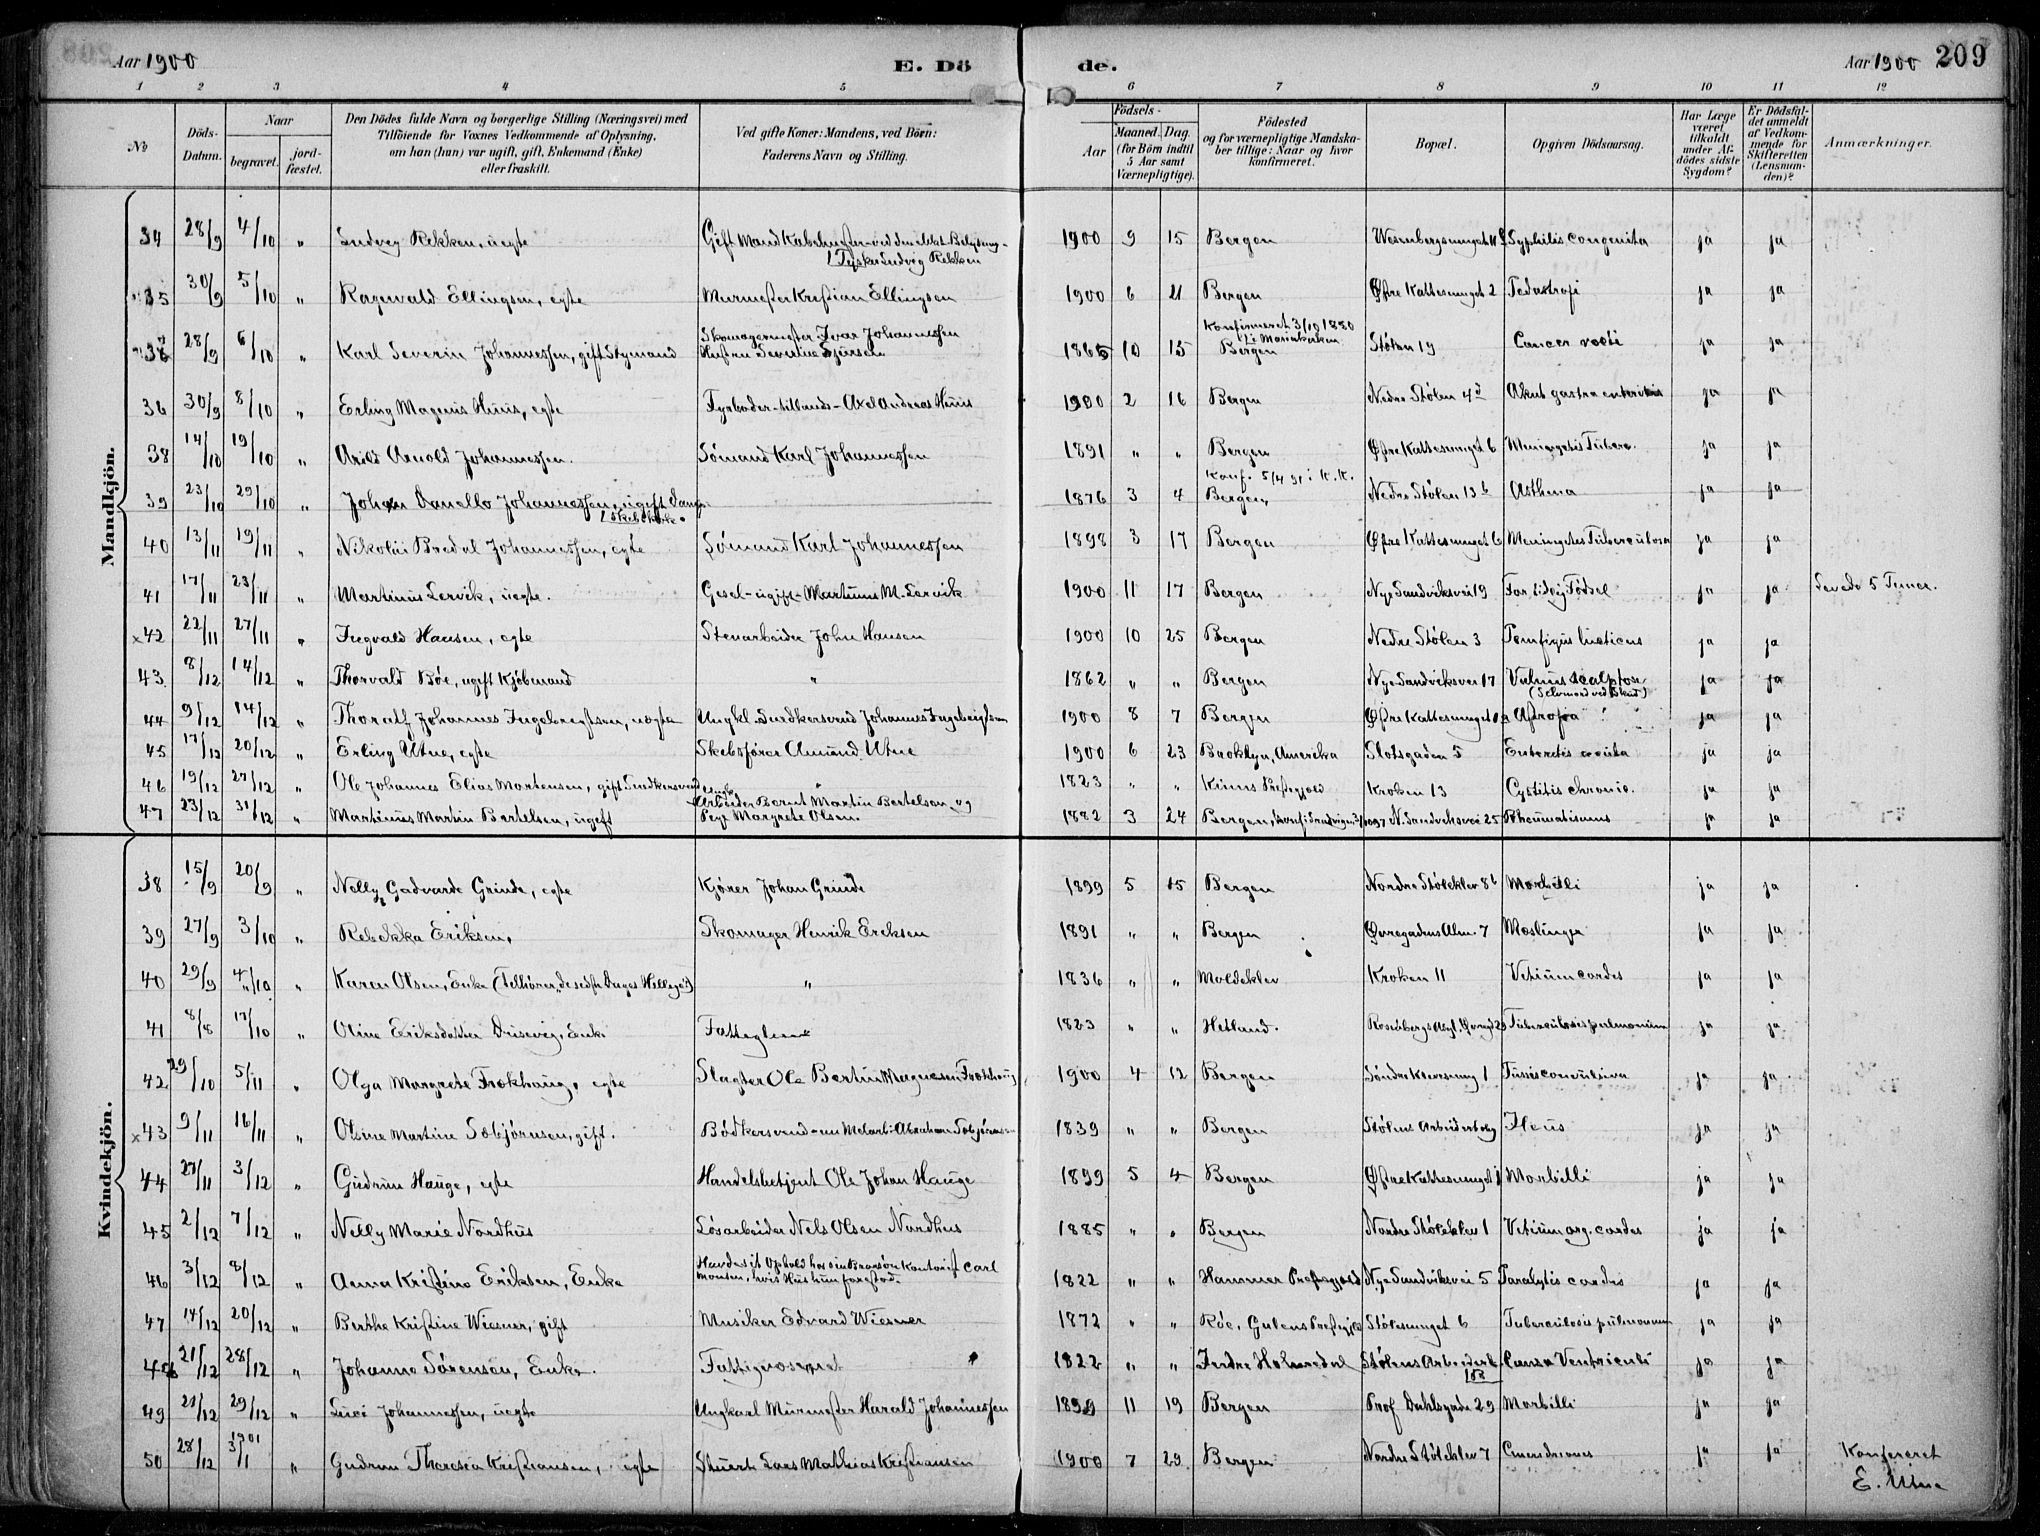 Aar 1900 E. Dö de. Aar 1900 209
1 2 3 4 5 6 7 8 9 10 11 12
No Döds-Datum. Naar begravet. jord-fæstet. Den Dödes fulde Navn og borgerlige Stilling (Næringsvei) med Tilföiende for Voxnes Vedkommende af Oplysning, om han (hun) var ugift, gift, Enkemand (Enke) eller fraskilt. Ved gifte Koner: Mandens, ved Börn: Faderens Navn og Stilling. Födsels- Aar Maaned. Dag. (for Börn indtil 5 Aar samt Værnepligtige). Födested og for værnepligtige Mandskaber tillige: Naar og hvor konfirmeret. Bopæl. Opgiven Dödsaarsag. Har Læge været tilkaldt under Afdödes sidste Sygdom? Er Dödsfaldet anmeldt af Vedkommende for Skifteretten (Lensmanden)? Anmærkninger.
Mandkjön.
34 28/9 4/10 " Ludvig Rekken, uegte Gift Mand Kabelmester ved den elekt. Belysning Tysker Ludvig Rekken 1900 9 15 Bergen Syphilis congenita ja ja
35 30/9 5/10 " Ragnvald Ellingsen, egte Murmester Kristian Ellingsen 1900 6 21 Bergen Øfre Kattesmuget 2 Pedatrofi ja ja
28/9 6/10 " Karl Severin Johannessen, gift Styrmand Skomagermester Ivar Johannessen Hustru Severine 1865 10 15 Konfirmeret 3/10 1880 i Mariakirken Bergen Stølen 19 Cancer recti ja ja
36 30/9 8/10 " Erling Magnus Huus, egte Fyrbøder tillands Axel Andreas Huus 1900 2 16 Bergen Nedre Stølen 4 Akut gastro enteritis ja ja
38 14/10 19/10 " Arild Arnold Johannessen. Sömand Karl Johannessen 1891 " " Bergen Øfre Kattesmuget 6 Meningetis Tuberc. ja ja
39 23/10 29/10 " Johan Danello Johannessen, ugift 1876 3 4 Konf. 5/4 91 i K.K. Bergen, Nedre Stølen 13b Asthma ja ja
40 13/11 19/11 " Nikolai Bredal Johannessen, egte Sömand Karl Johannessen 1898 3 17 Bergen Øfre Kattesmuget 6 Meningetis Tuberculosa ja ja
41 17/11 23/11 " Martinus Lervik, uegte. ugift Martinus M. Lervik 1900 11 17 Bergen Nye Sandviksvei 19 For tidlig Födsel ja ja Levede 5 Timer.
x42 22/11 27/11 " Ingvald Hansen, egte Stenarbeider John Hansen 1900 10 25 Bergen Nedre Stølen 3 Pemfigus lueticus ja ja
43 8/12 14/12 " Thorvald Böe, ugift Kjöbmand " 1862 " " Bergen Nye Sandviksvei 17 Vulnus (Selvmord ved Skud) ja ja
44 9/12 14/12 " Thoralf Johannes Ingebregtsen, uegte Ungkl. Snedkersvend Johannes Ingebrigtsen 1900 8 7 Bergen Øfre Kattesmuget Atrofia ja ja
45 17/12 20/12 " Erling Utne, egte Skibsfører Amund Utne 1900 6 23 Brooklyn, Amerika Slotsgaden 5 Enteretis acuta ja ja
46 19/12 27/12 " Ole Johannes Elias Mortensen, gift Snedkersvend " 1823 " " Kinns Præstegjæld Kroken 13 Cystitis chronic. ja ja
47 23/12 31/12 " Martinus Martin Bertelsen, ugift Arbeider Bernt Martin Bertelsen og Pige Margrete Olsen. 1882 3 24 Bergen, N. Sandviksvei 25 Rheumatismus ja ja
Kvindekjön.
38 15/9 20/9 " Nelly Gadvarda Grinde, egte Kjører Johan Grinde 1899 5 15 Bergen Nordre Stølekleв 8b Morbilli ja ja
39 27/9 3/10 " Rebekka Eriksen, Skomager Henrik Eriksen 1891 " " Bergen Øvregadens Alm. 7 Meslinger ja ja
40 29/9 4/10 " Karen Olsen, Enke (Tilhører de sidste Dages Hellige) " 1836 " " Moldeklev Kroken 11 Vitium cordis ja ja
41 8/8 17/10 " Oline Eriksdatter Drisevig, Enke Fattiglem 1823 " " Hetland. Tuberculosis pulmonum ja ja
42 29/10 5/11 " Olga Margrete Frækhaug, egte Slagter Ole Bertin Magnesen Frækhaug 1900 4 12 Bergen Söndre Kleversmug 1 Tussis convulsiva ja ja
x43 9/11 16/11 " Olsine Martine Sæbjörnsen, gift. Bödkersvend Abraham Sæbjörnsen 1839 " " Bergen Stølens Arbeiderbolig Ileus ja ja
44 27/11 3/12 " Gudrun Hauge, egte Handelsbetjent Ole Johan Hauge 1899 5 4 Bergen Øfre Kattesmuget 1 Morbilli ja ja
45 2/12 7/12 " Nelly Marie Nordhus Løsarbeider Nels Olsen Nordhus 1885 " " Bergen Nordre Støleklev 1 Vitium org. cordis ja ja
46 3/12 8/12 " Anna Kristine Eriksen, Enke Havde sit Ophold hos sin Brorsøn Kontorist Carl Monsen, hvis Hus hun forestod. 1822 " " Hammer Præstegjæld Nye Sandviksvei 5 Paralytis cordis ja ja
47 14/12 20/12 " Berthe Kristine Wiesner, gift Musiker Edvard Wiesner 1872 " " Röe, Gulens Præstegjæld Stølesmuget 6 Tuberculosis pulmonum ja ja
48 21/12 28/12 " Johanne Sörensen, Enke. Fattigvæsenet 1822 " " Indre Holmedal Stølens Arbeiderb. Cancer Ventriculi ja ja
49 21/12 29/12 " Luci Johannessen, uegte Ungkarl Murmester Harald Johannessen 1899 11 19 Bergen Prof Dahlsgade 29 Morbilli ja ja
50 28/12 1901 3/1 " Gudrun Theresia Kristiansen, egte Stuert Lars Mathias Kristiansen 1900 7 29 Bergen Nordre Støleklev 7 ja ja Konfereret
E. Utne